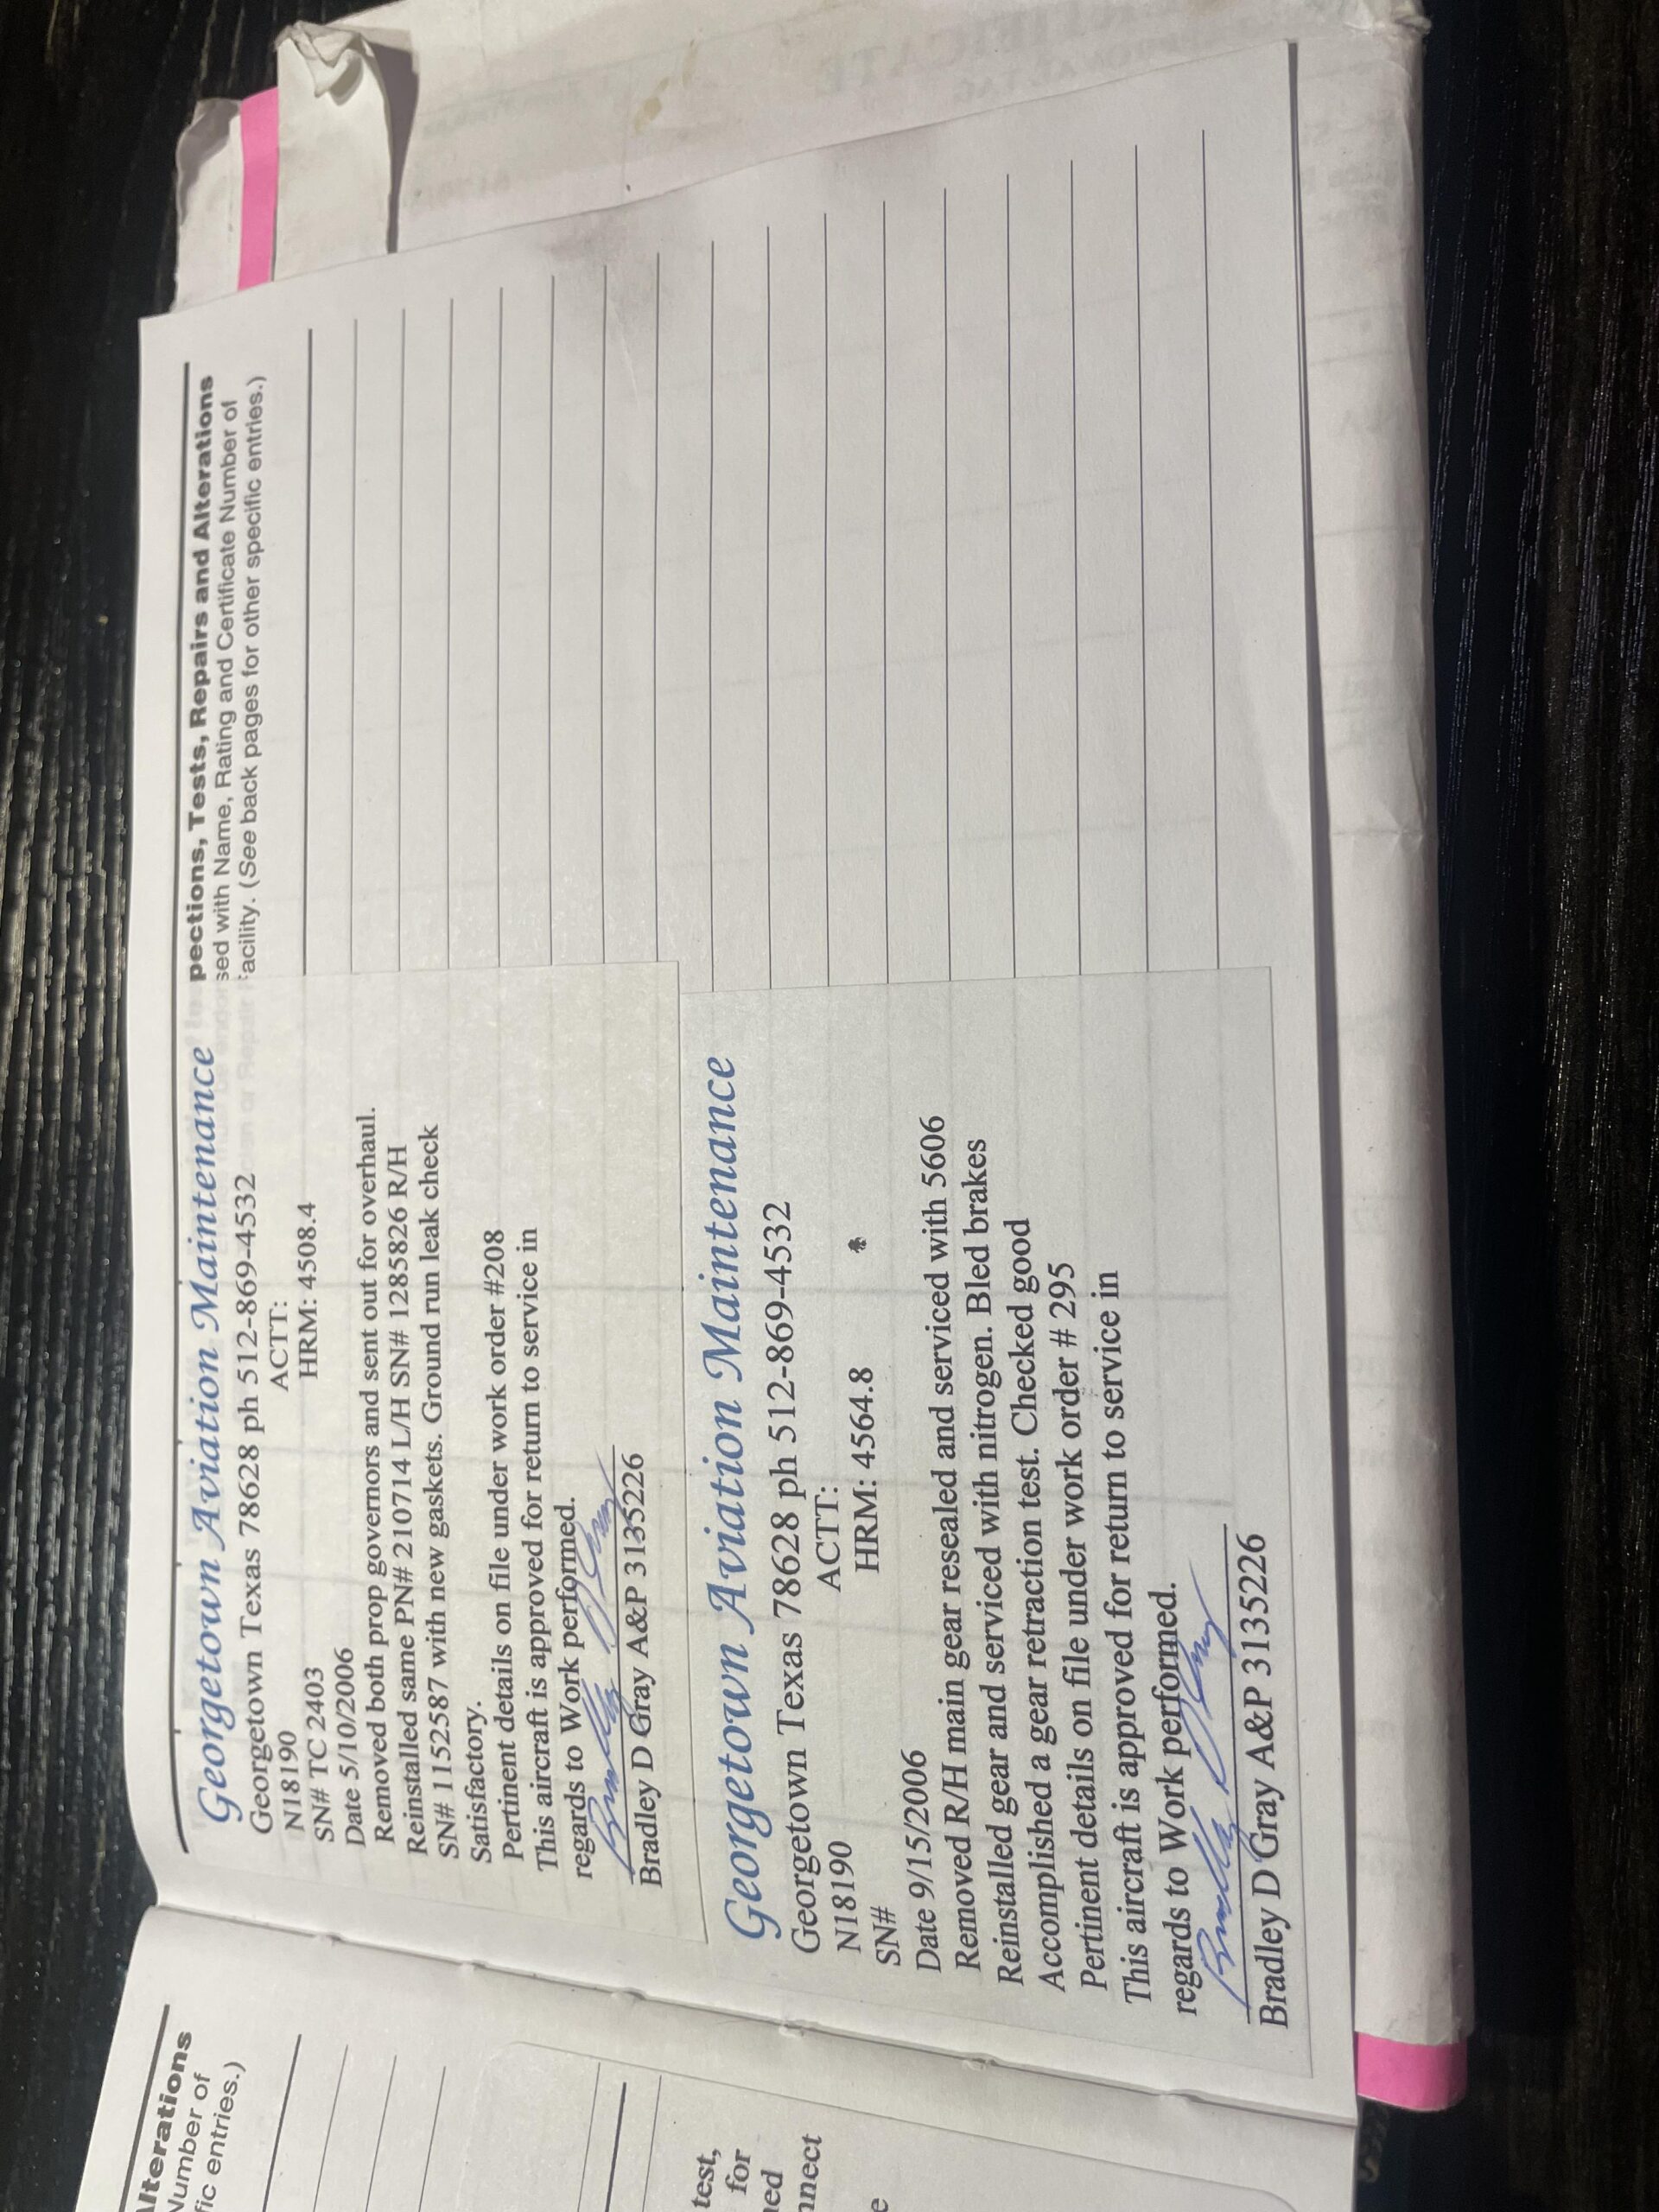 pections, Tests, Repairs and Alterations
sed with Name, Rating and Certificate Number of
facility. (See back pages for other specific entries.)
Georgetown Aviation Maintenance
Georgetown Texas 78628 ph 512-869-4532
N18190 ACTT:
SN# TC 2403 HRM: 4508.4
Date 5/10/2006
Removed both prop governors and sent out for overhaul.
Reinstalled same PN# 210714 L/H SN# 1285826 R/H
SN# 1152587 with new gaskets. Ground run leak check
Satisfactory.
Pertinent details on file under work order #208
This aircraft is approved for return to service in
regards to Work performed.
Bradley D Gray A&P 3135226
Georgetown Aviation Maintenance
Georgetown Texas 78628 ph 512-869-4532
N18190 ACTT:
SN# HRM: 4564.8
Date 9/15/2006
Removed R/H main gear resealed and serviced with 5606
Reinstalled gear and serviced with nitrogen. Bled brakes
Accomplished a gear retraction test. Checked good
Pertinent details on file under work order # 295
This aircraft is approved for return to service in
regards to Work performed.
Bradley D Gray A&P 3135226
Alterations
Number of
fic entries.)
test,
for
ned
nnect
e